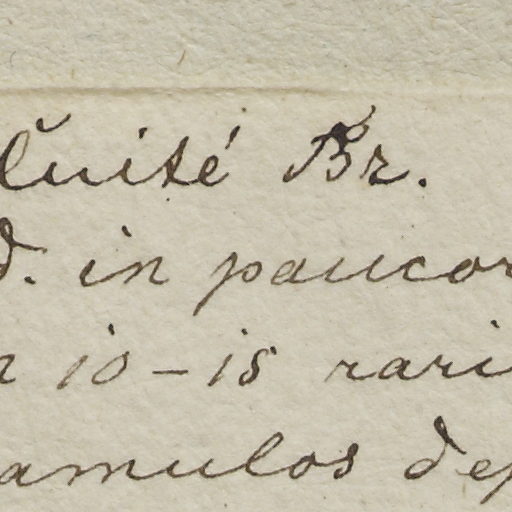 luité Br.
d. in paucor
10-15 rari
amulos dep